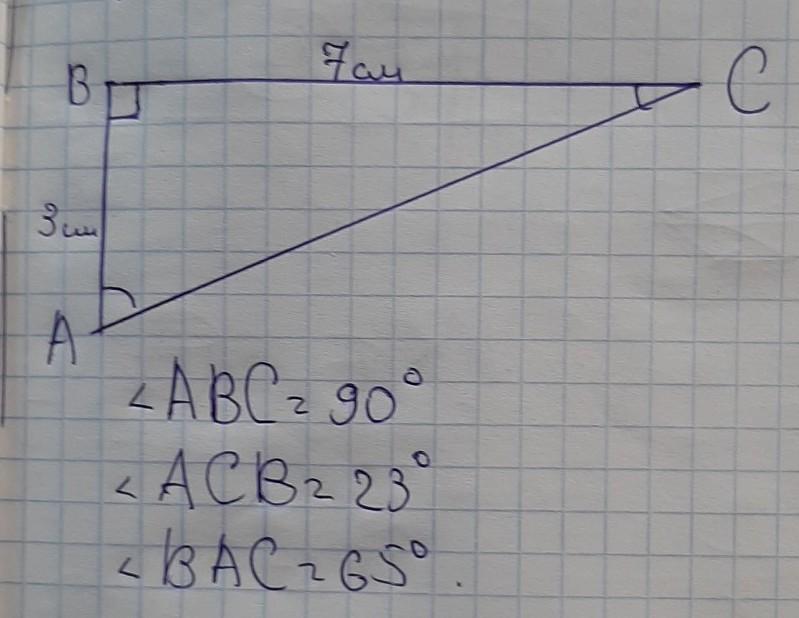 7см
B
C
3см
A
<ABC=90°
<ACB=23°
<BAC=65°.